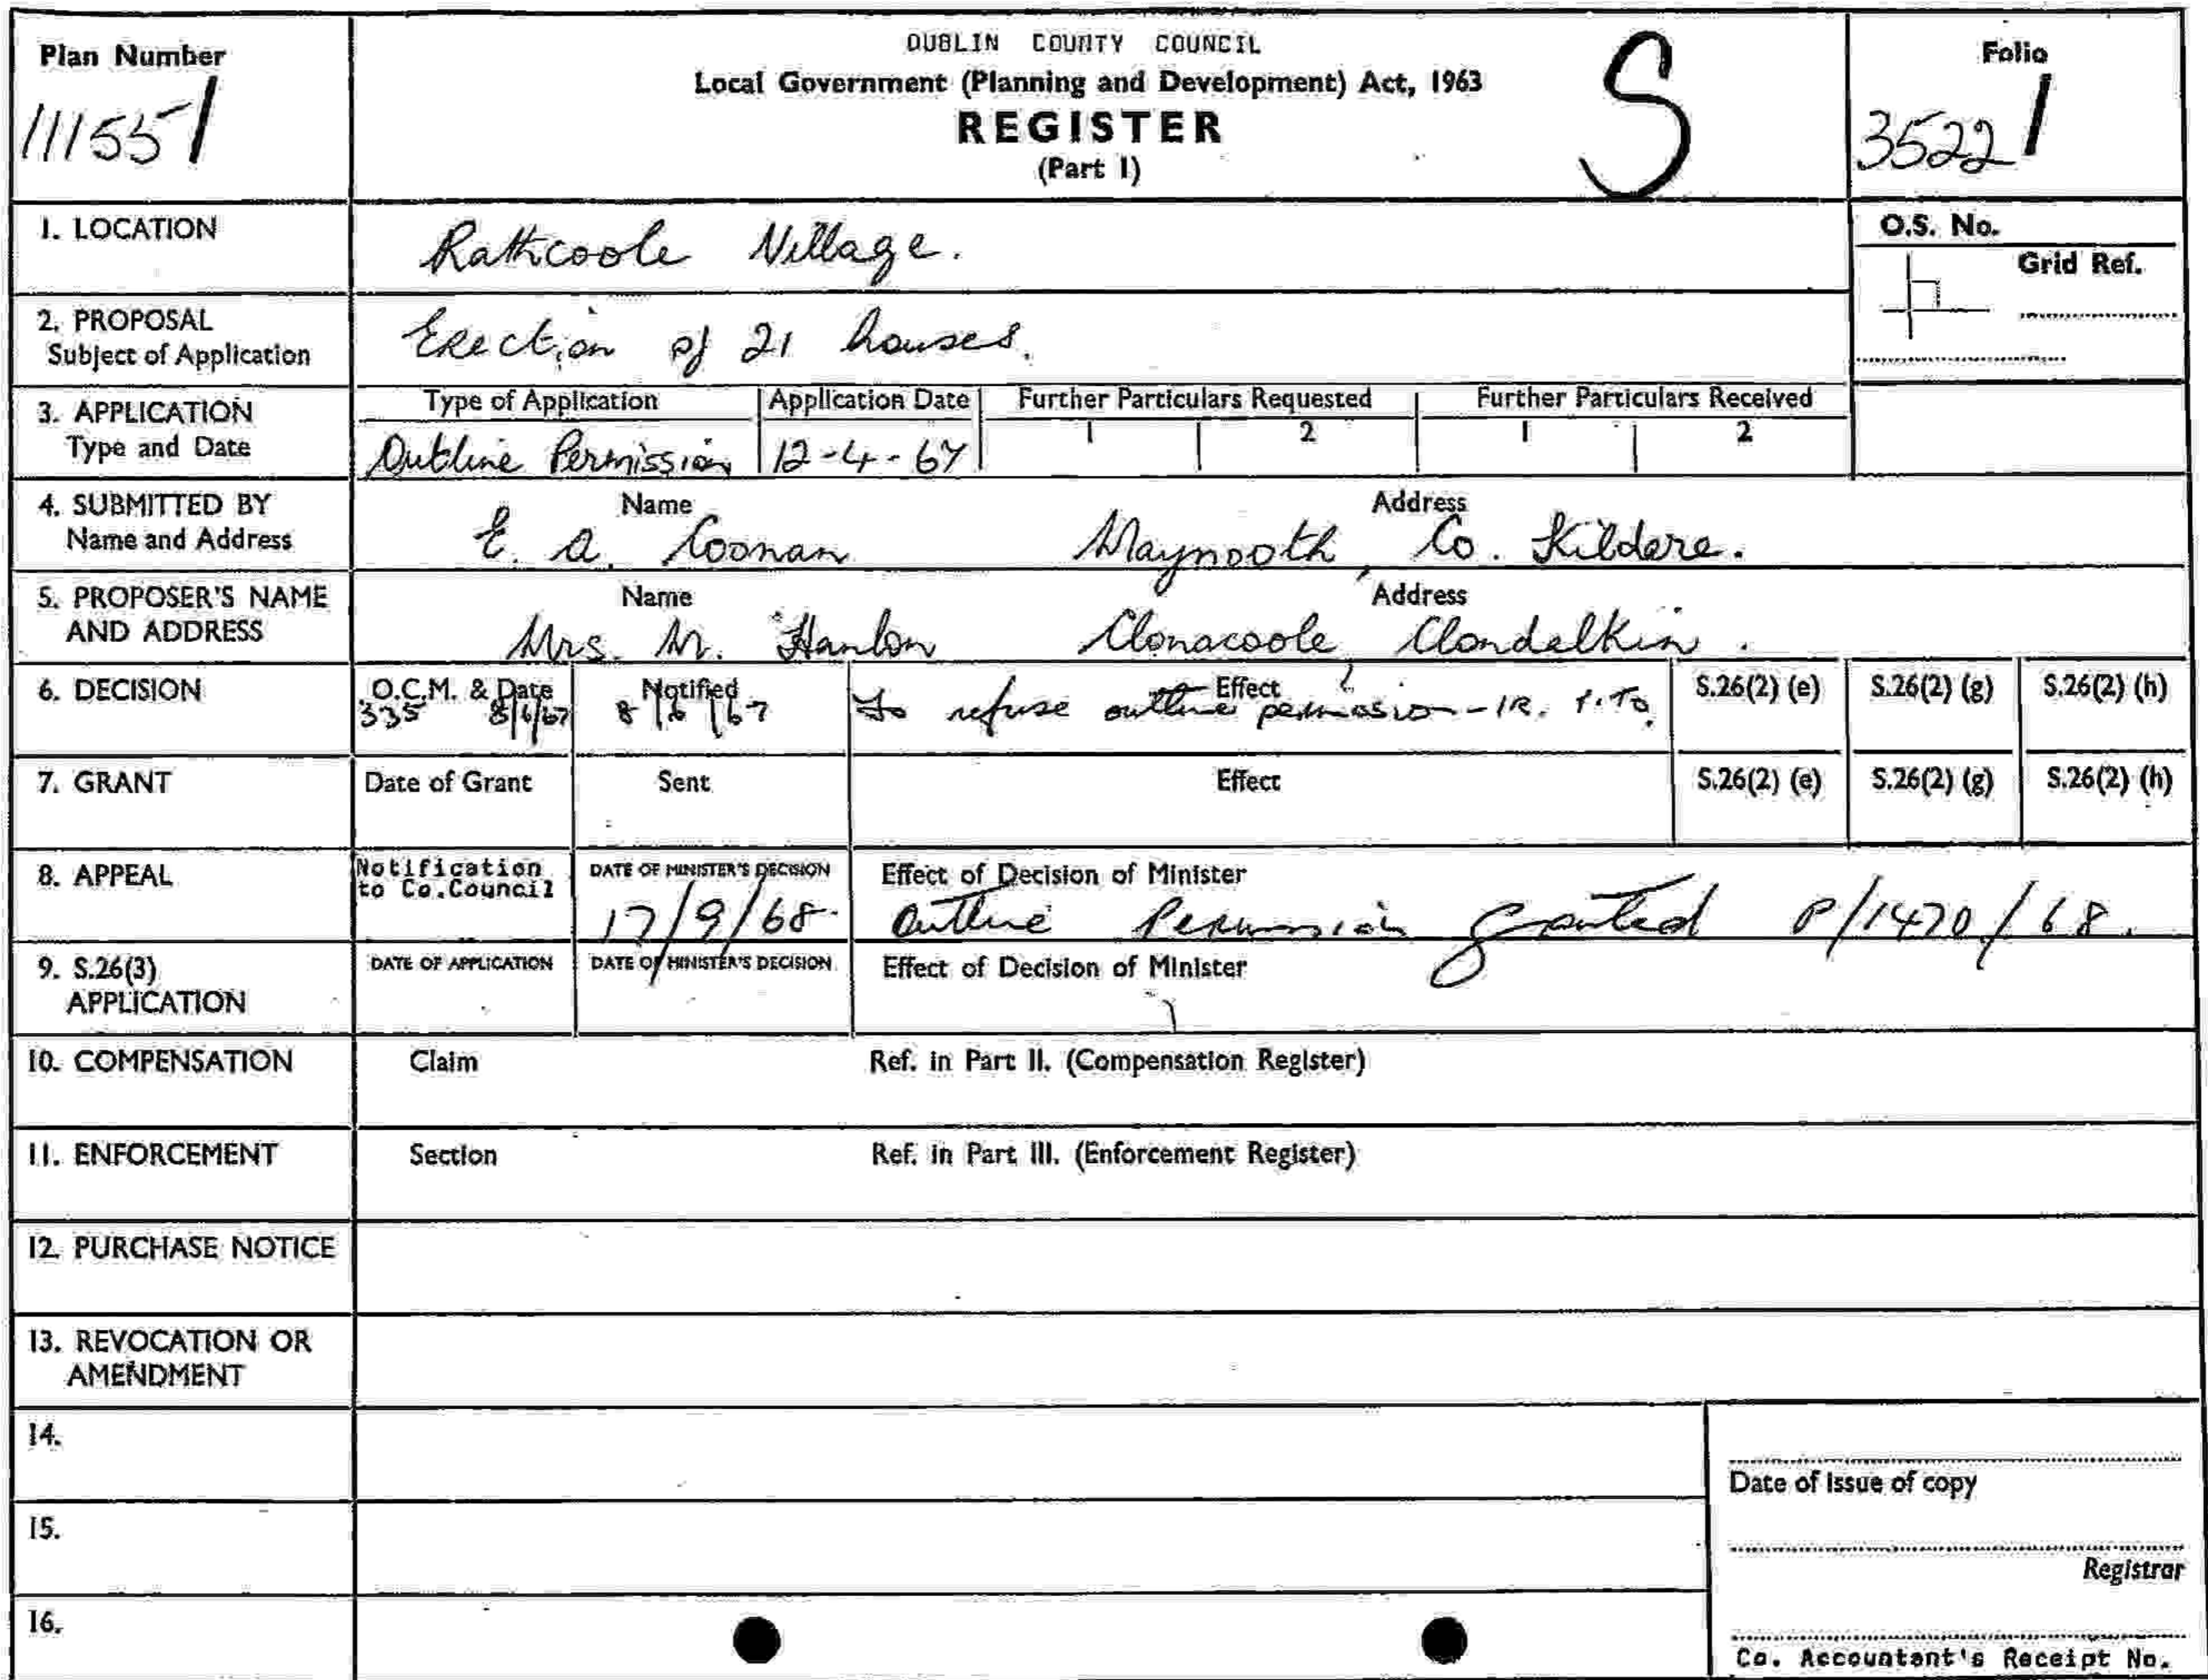 Plan Number
11155/
DUBLIN COUNTY COUNCIL
Local Government (Planning and Development) Act, 1963
REGISTER
(Part I)
S
Folio
3522/
1. LOCATION
Rathcoole Village.
O.S. No.
Grid Ref.
2. PROPOSAL
Subject of Application
Erection of 21 houses.
3. APPLICATION
Type and Date
Type of Application
Application Date
Further Particulars Requested
Further Particulars Received
1
2
1
2
Outline Permission
12-4-67
4. SUBMITTED BY
Name and Address
Name
Address
E. A. Coonan
Maynooth, Co. Kildere.
5. PROPOSER'S NAME
AND ADDRESS
Name
Address
Mrs. M. Hanlon
Clonacoole, Clondalkin.
6. DECISION
O.C.M. & Date
335 8/6/67
Notified
8/6/67
Effect
To refuse outline permission - 1R. P.T.O.
S.26(2) (e)
S.26(2) (g)
S.26(2) (h)
7. GRANT
Date of Grant
Sent
Effect
S.26(2) (e)
S.26(2) (g)
S.26(2) (h)
8. APPEAL
Notification
to Co.Council
DATE OF MINISTER'S DECISION
17/9/68.
Effect of Decision of Minister
Outline Permission granted P/1470/68.
9. S.26(3)
APPLICATION
DATE OF APPLICATION
DATE OF MINISTER'S DECISION
Effect of Decision of Minister
10. COMPENSATION
Claim
Ref. in Part II. (Compensation Register)
11. ENFORCEMENT
Section
Ref. in Part III. (Enforcement Register)
12. PURCHASE NOTICE
13. REVOCATION OR
AMENDMENT
14.
Date of issue of copy
15.
Registrar
16.
Co. Accountant's Receipt No.